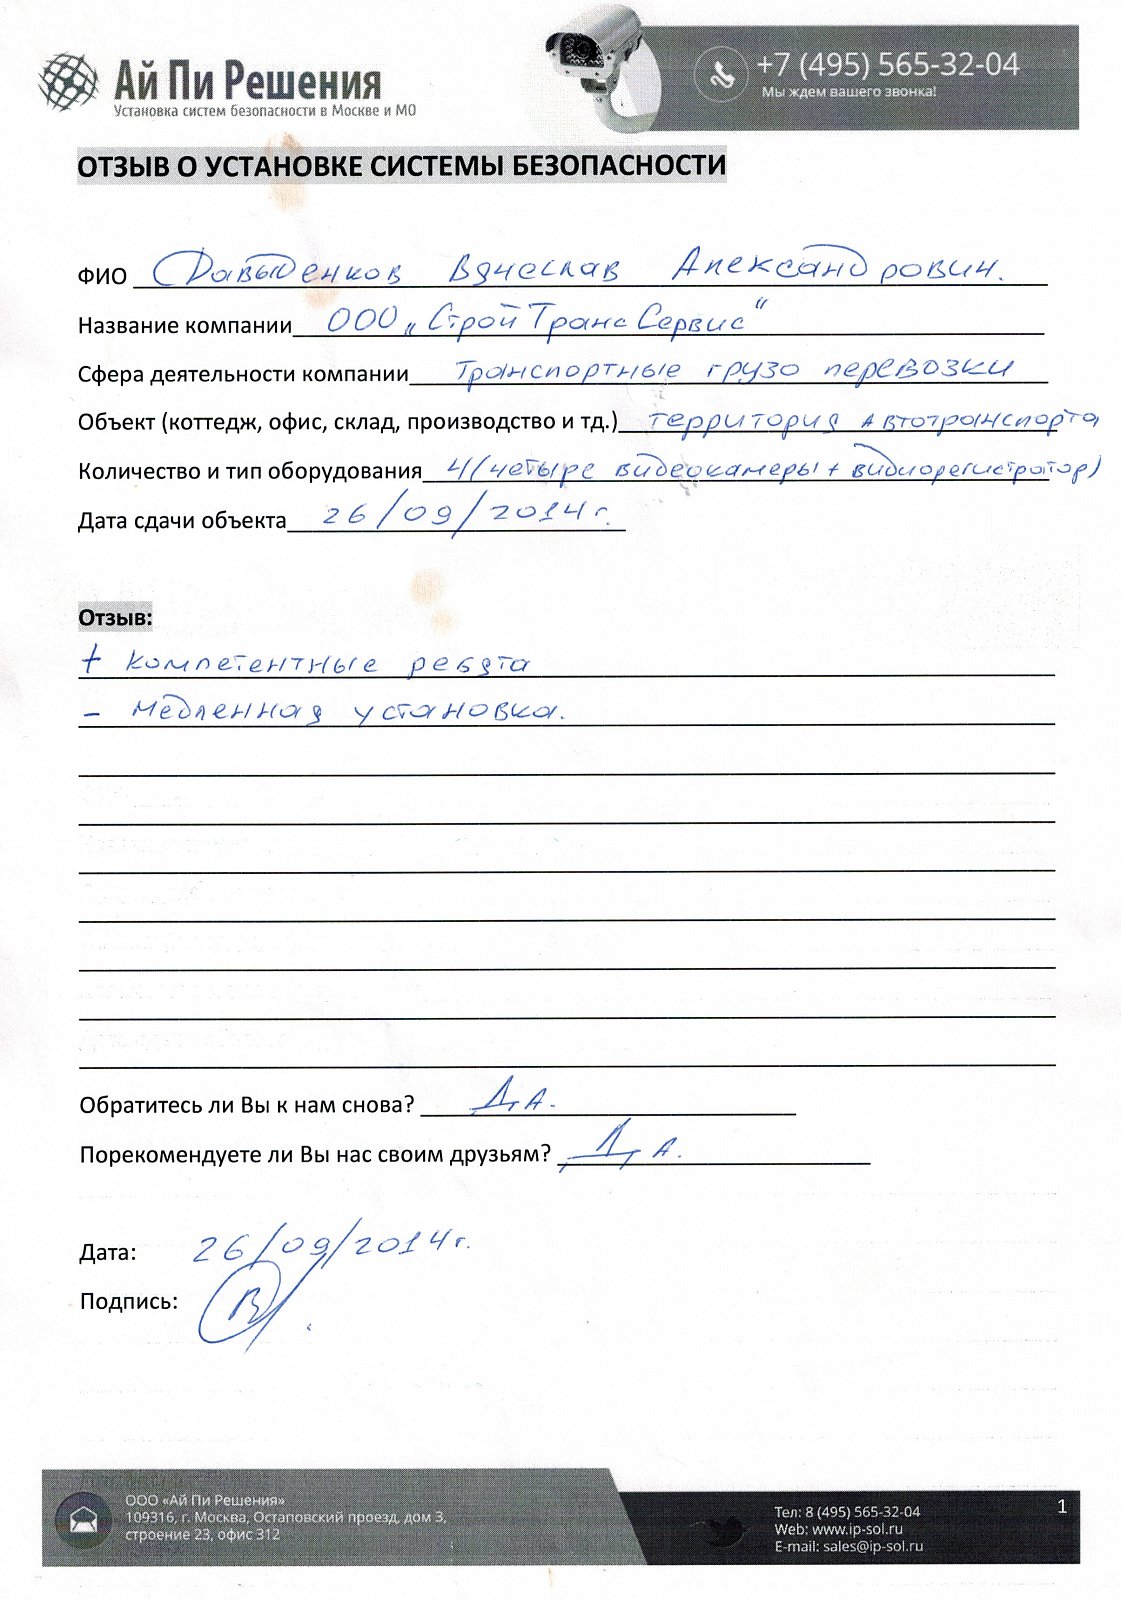 Ай Пи Решения
Установка систем безопасности в Москве и МО
+7 (495) 565-32-04
Мы ждем вашего звонка!
ОТЗЫВ О УСТАНОВКЕ СИСТЕМЫ БЕЗОПАСНОСТИ
ФИО Давыденков Вячеслав Александрович.
Название компании ООО „СтройТрансСервис“
Сфера деятельности компании Транспортные грузо перевозки
Объект (коттедж, офис, склад, производство и тд.) территория Автотранспорта
Количество и тип оборудования 4 (четыре видеокамеры + видиорегистратор)
Дата сдачи объекта 26/09/2014г.
Отзыв:
+ Компетентные ребята
- Медленная установка.
Обратитесь ли Вы к нам снова? ДА.
Порекомендуете ли Вы нас своим друзьям? ДА.
Дата: 26/09/2014г.
Подпись: В
ООО «Ай Пи Решения»
109316, г. Москва, Остаповский проезд, дом 3,
строение 23, офис 312
Тел: 8 (495) 565-32-04
Web: www.ip-sol.ru
E-mail: sales@ip-sol.ru
1